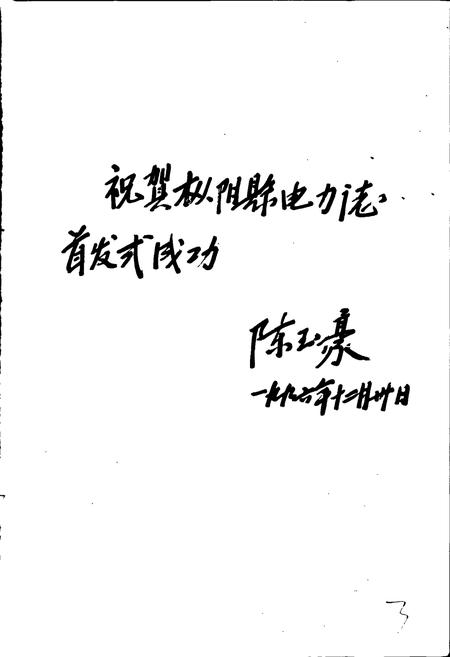 祝賀枞阳縣电力誌
首发式成功
陈玉豪
一九九六年十二月卅日
3